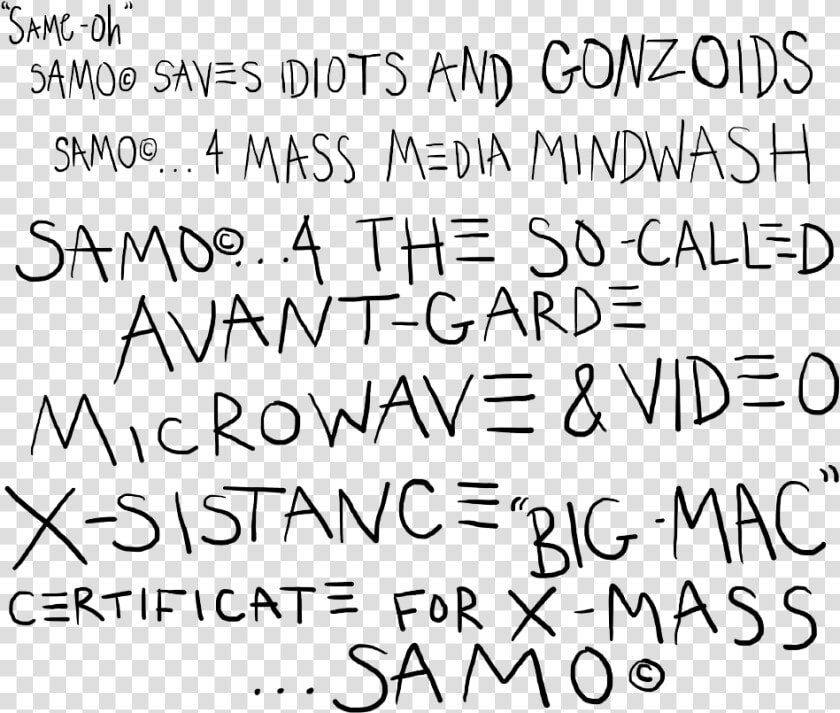 "SAMe-Oh"
SAMO© SAVES IDIOTS AND GONZOIDS
SAMO©... 4 MASS MEDIA MINDWASH
SAMO©...4 THE SO-CALLED
AVANT-GARDE
MiCROWAVE & VIDEO
X-SISTANCE "BIG-MAC"
CERTIFICATE FOR X-MASS
...SAMO©